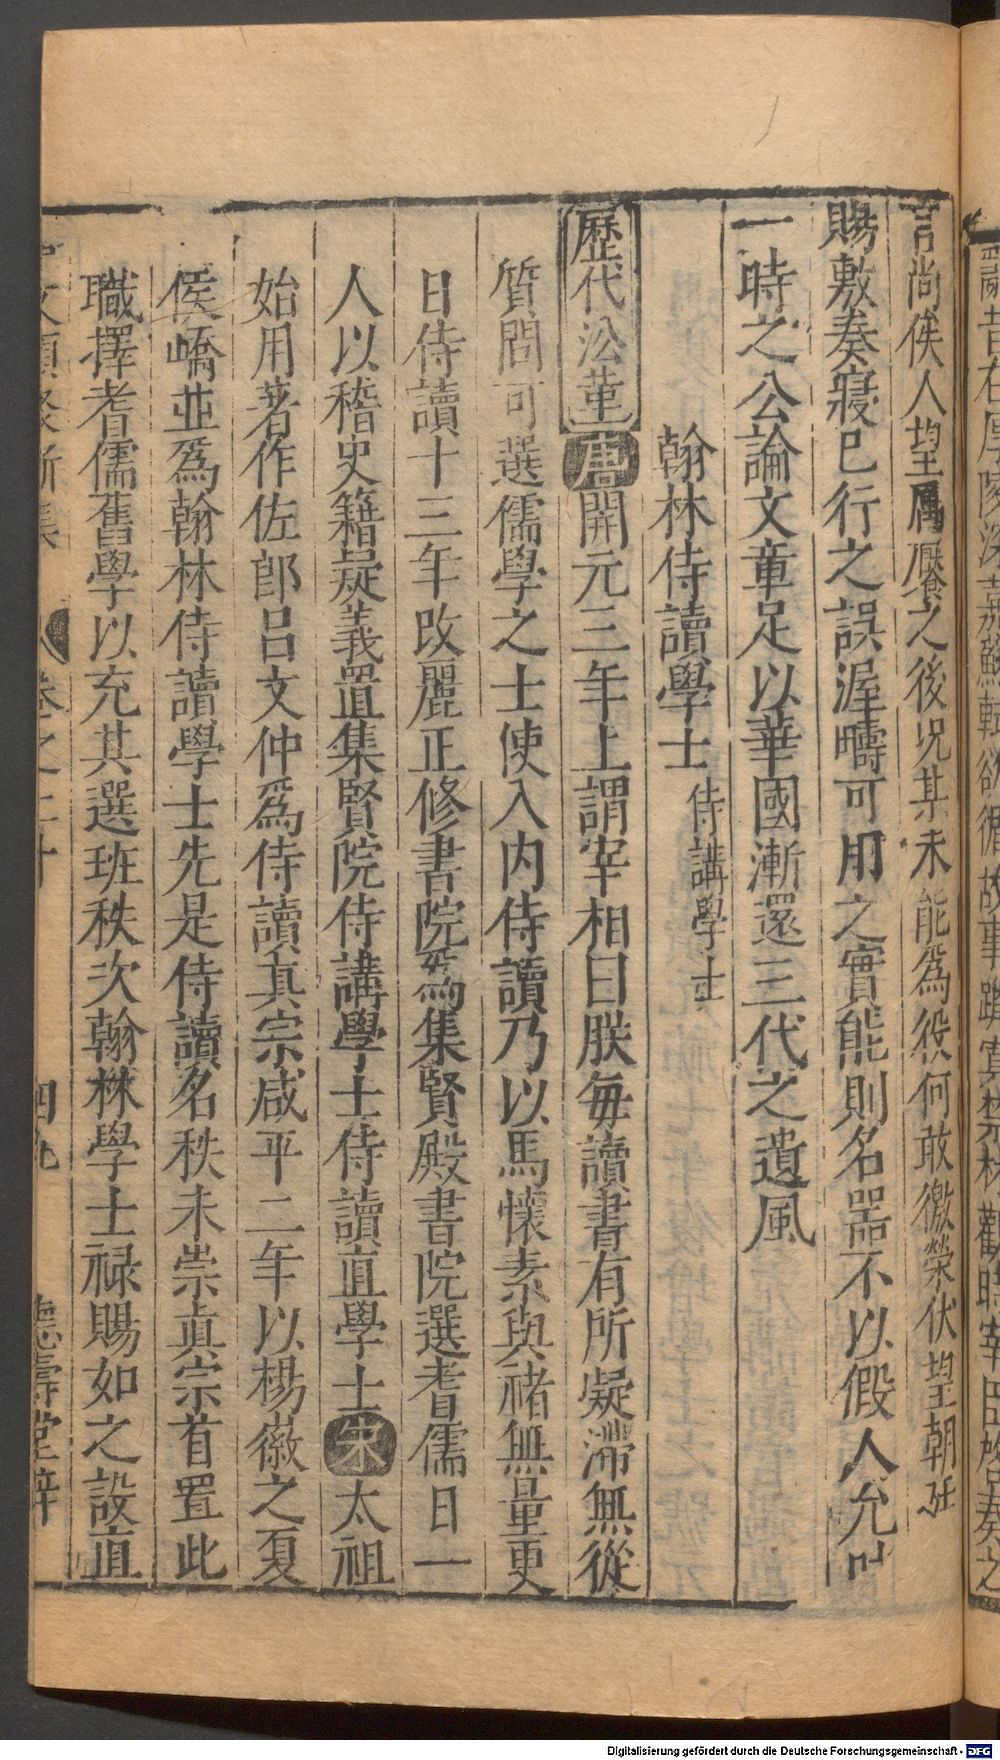 言尚俟人望屬厭之後况某未能爲役何敢徼榮伏望朝廷
賜敷奏寢已行之誤渥疇可用之實能則名器不以假人允叶
一時之公論文章足以華國漸還三代之遺風
翰林侍讀學士 侍講學士
歷代沿革 唐開元三年上謂宰相曰朕每讀書有所疑滯無從
質問可選儒學之士使入内侍讀乃以馬懷素與禇無量更
日侍讀十三年改麗正修書院爲集賢殿書院選耆儒日一
人以稽史籍疑義置集賢院侍講學士侍讀直學士宋太祖
始用著作佐郎吕文仲爲侍讀真宗咸平二年以楊徽之夏
侯嶠並爲翰林侍讀學士先是侍讀名秩未崇真宗首置此
職擇耆儒舊學以充其選班秩次翰林學士禄賜如之設直
事文類聚新集 卷之二十 四九 德壽堂梓
Digitalisierung gefördert durch die Deutsche Forschungsgemeinschaft - DFG